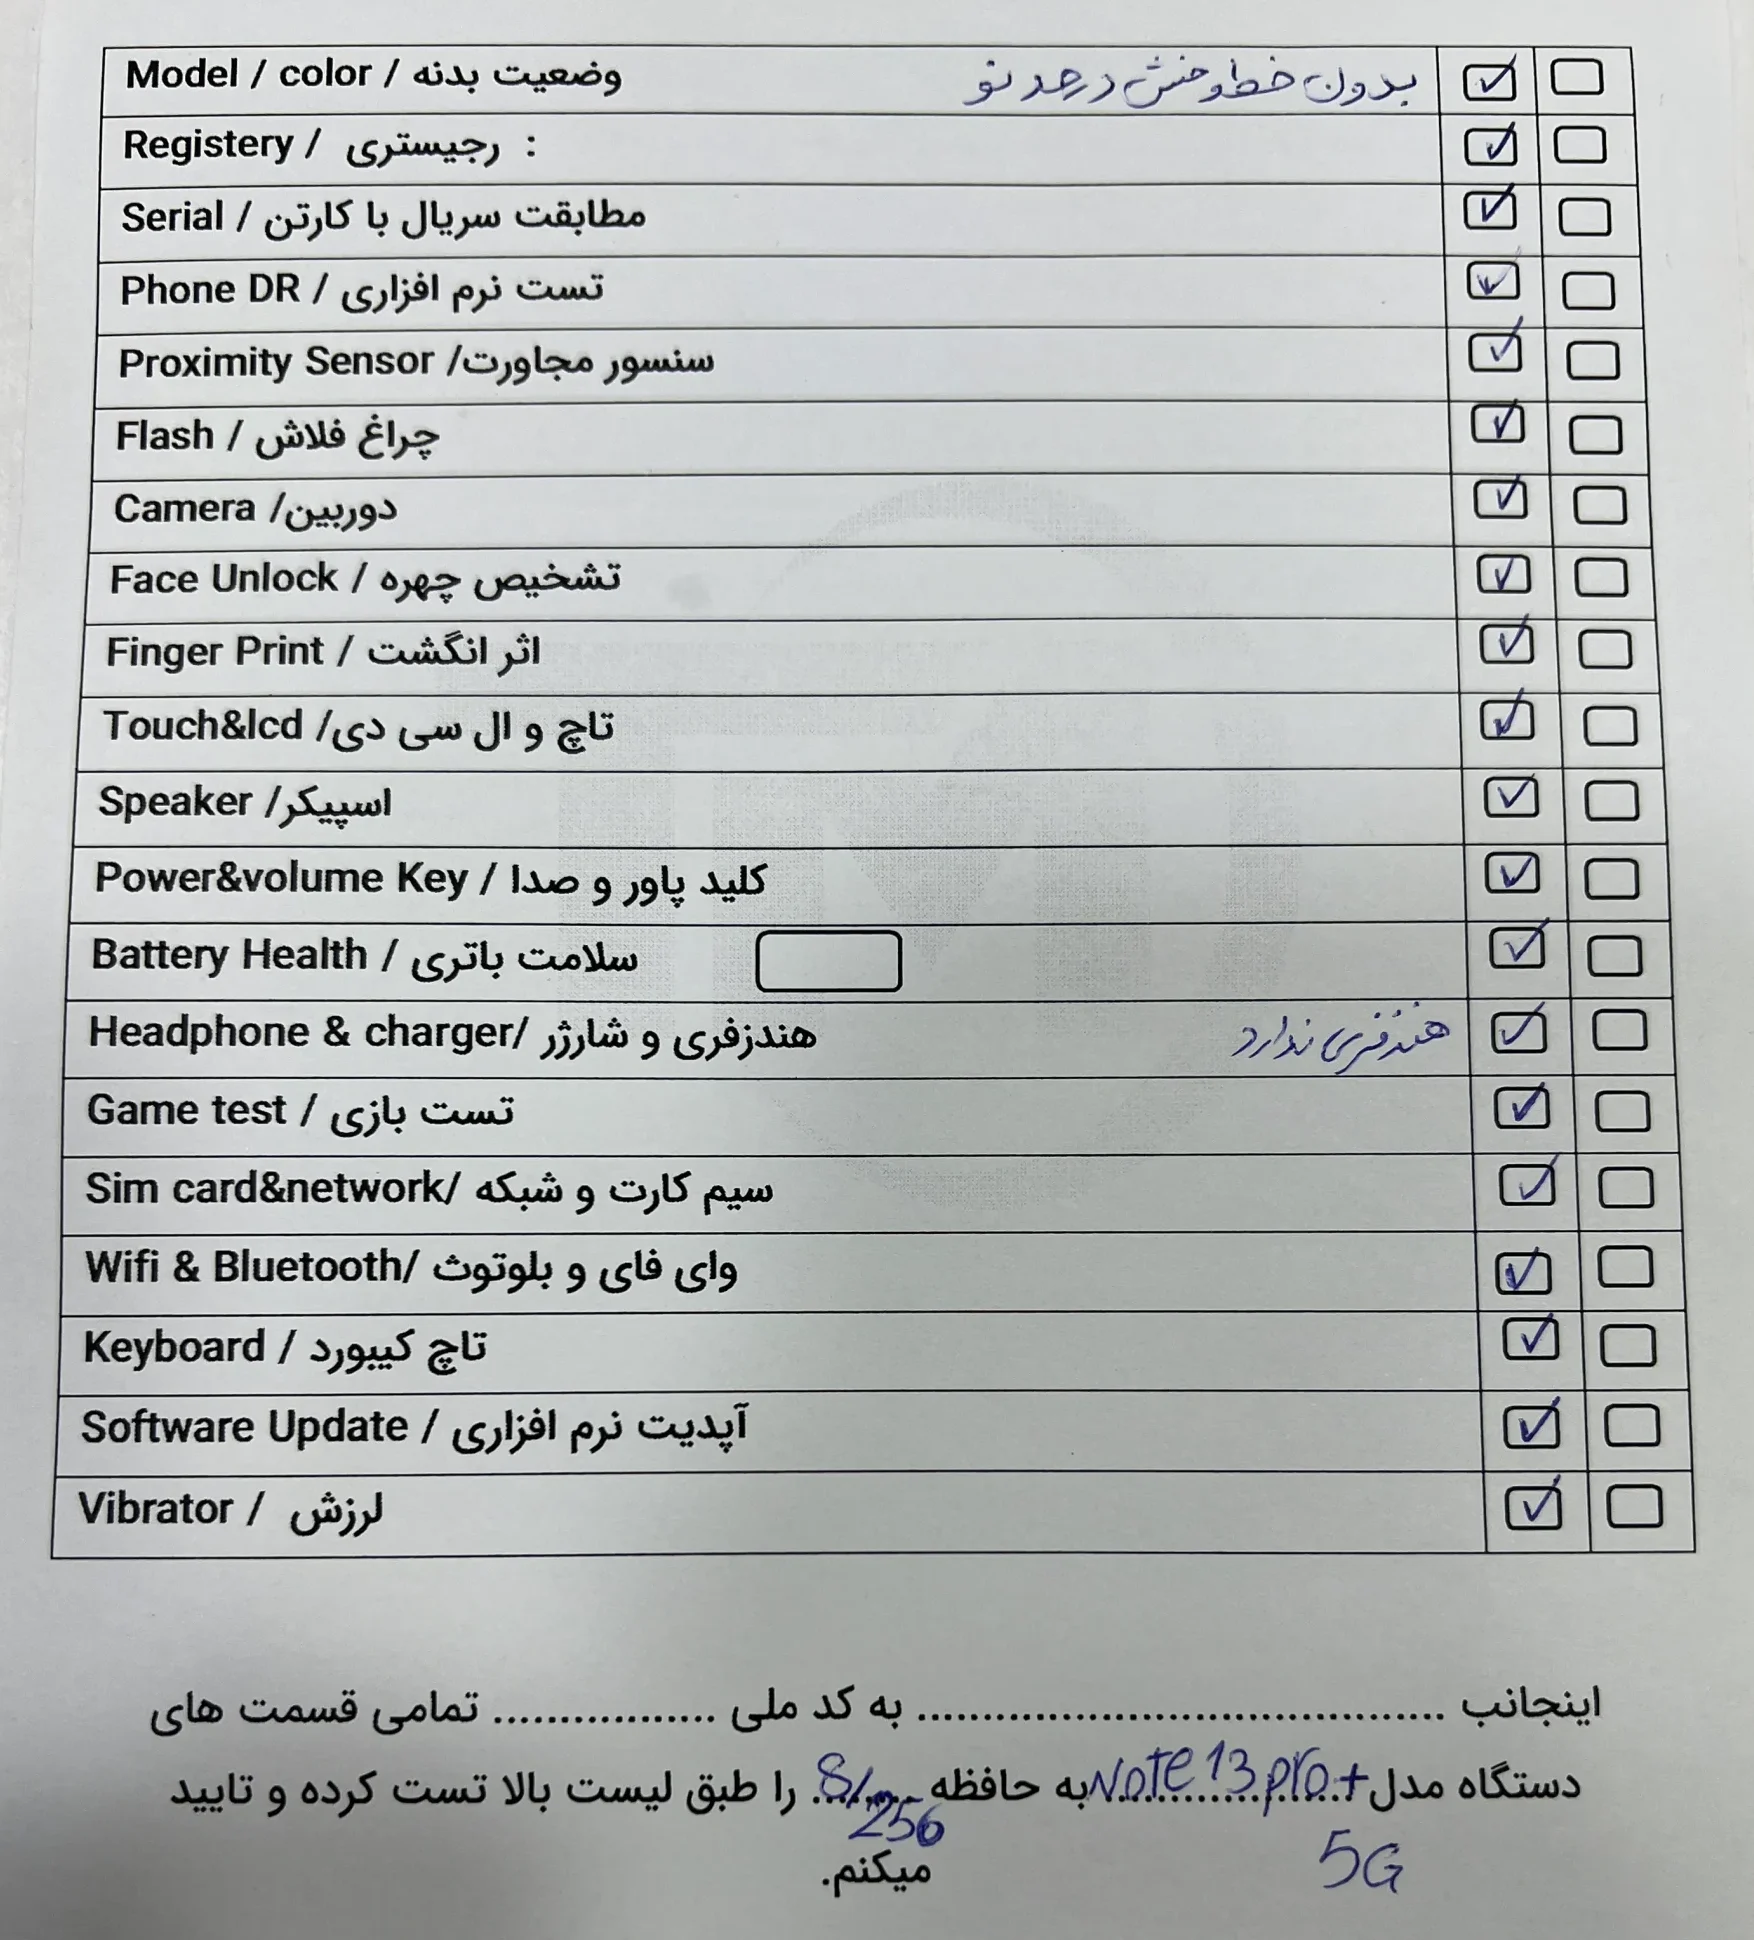 Model / color / وضعیت بدنه بدون خط و خش در حد نو
Registery / رجیستری :
Serial / مطابقت سریال با کارتن
Phone DR / تست نرم افزاری
Proximity Sensor /سنسور مجاورت
Flash / چراغ فلاش
Camera /دوربین
Face Unlock / تشخیص چهره
Finger Print / اثر انگشت
Touch&lcd /تاچ و ال سی دی
Speaker /اسپیکر
Power&volume Key / کلید پاور و صدا
Battery Health / سلامت باتری
Headphone & charger/ هندزفری و شارژر هندزفری ندارد
Game test / تست بازی
Sim card&network/ سیم کارت و شبکه
Wifi & Bluetooth/ وای فای و بلوتوث
Keyboard / تاچ کیبورد
Software Update / آپدیت نرم افزاری
Vibrator / لرزش
اینجانب ........................................ به کد ملی ................. تمامی قسمت های
دستگاه مدل Note 13 pro+ به حافظه 8/ را طبق لیست بالا تست کرده و تایید
256
میکنم.
5G